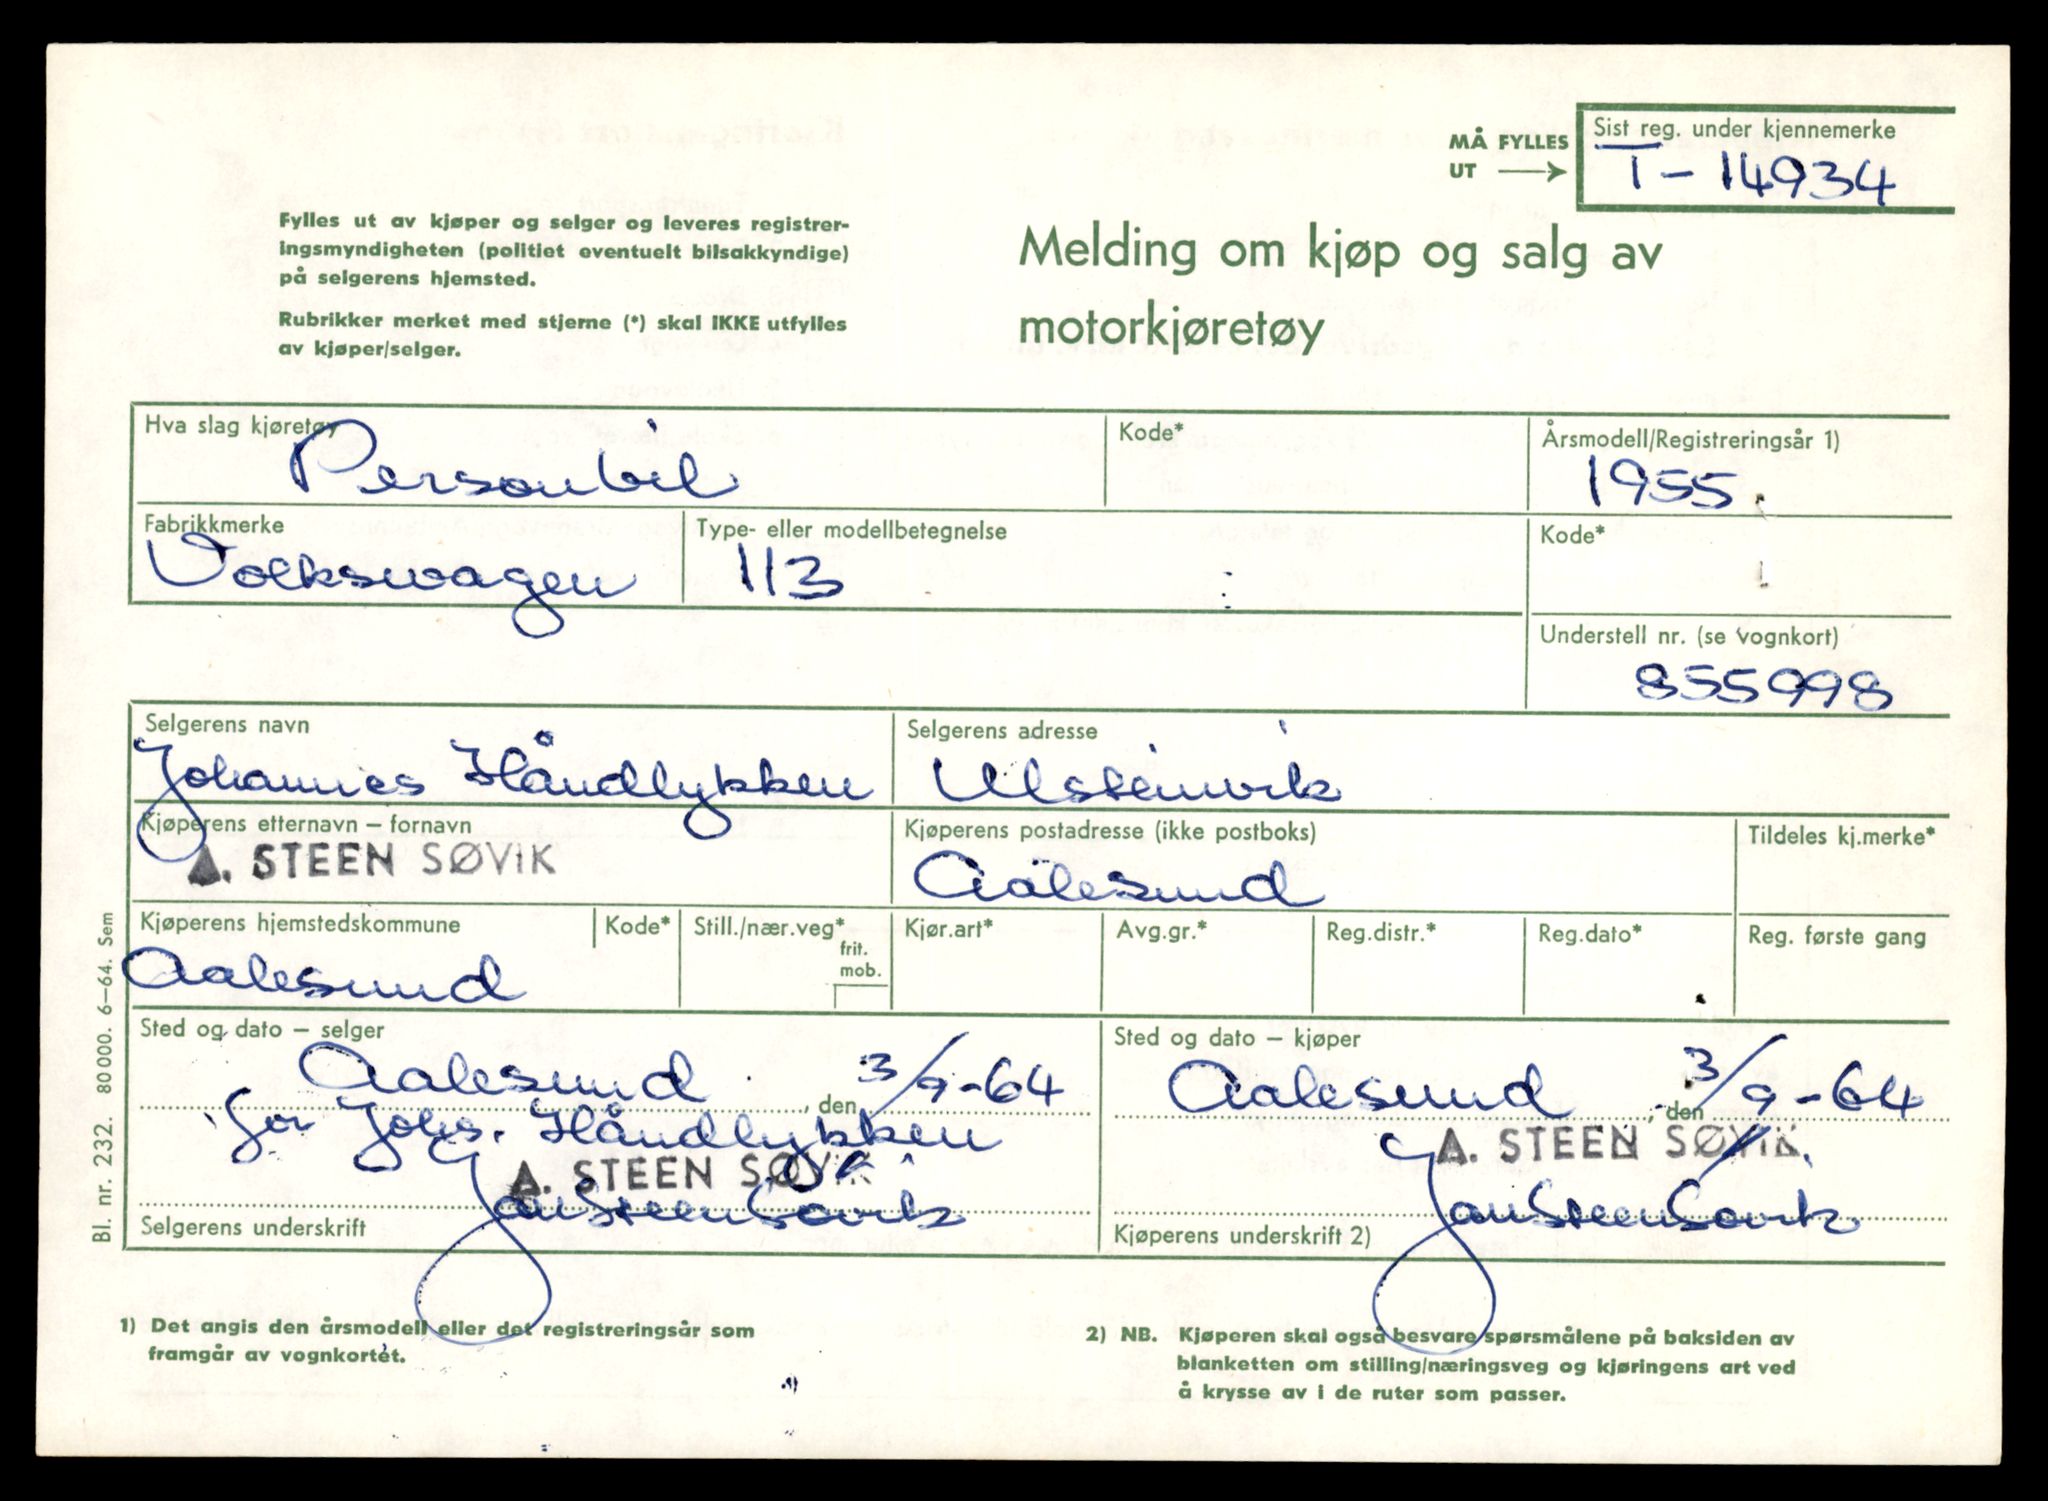 MÅ FYLLES
UT
Sist reg. under kjennemerke
T-14934
Fylles ut av kjøper og selger og leveres registrer-
ingsmyndigheten (politiet eventuelt bilsakkyndige)
på selgerens hjemsted.
Rubrikker merket med stjerne (*) skal IKKE utfylles
av kjøper/selger.
Melding om kjøp og salg av
motorkjøretøy
Hva slag kjøretøy
Personbil
Kode*
Årsmodell/Registreringsår 1)
1955
Fabrikkmerke
Volkswagen
Type- eller modellbetegnelse
113
Kode*
Understell nr. (se vognkort)
855998
Selgerens navn
Johannes Håndlykken
Selgerens adresse
Ulsteinvik
Kjøperens etternavn – fornavn
A. STEEN SØVIK
Kjøperens postadresse (ikke postboks)
Aalesund
Tildeles kj.merke*
Kjøperens hjemstedskommune
Aalesund
Kode*
Still./nær.veg*
frit.
mob.
Kjør.art*
Avg.gr.*
Reg.distr.*
Reg.dato*
Reg. første gang
Sted og dato – selger
Aalesund, den 3/9-64
for Johs. Håndlykken
A. STEEN SØVIK
Jan Steen Søvik
Selgerens underskrift
Sted og dato – kjøper
Aalesund, den 3/9-64
A. STEEN SØVIK.
Jan Steen Søvik
Kjøperens underskrift 2)
1) Det angis den årsmodell eller det registreringsår som
framgår av vognkortet.
2) NB. Kjøperen skal også besvare spørsmålene på baksiden av
blanketten om stilling/næringsveg og kjøringens art ved
å krysse av i de ruter som passer.
Bl. nr. 2232. 80000. 6–64. Sem